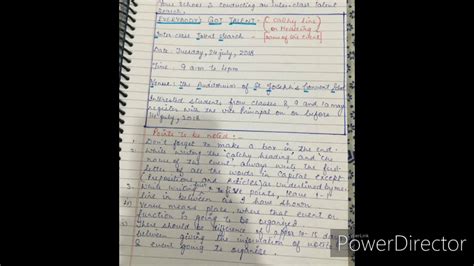 Your School is conducting an Inter-class Talent
Search.
EVERYBODY'S GOT TALENT - ( Catchy line
or Heading
Inter-class Talent Search - name of the Event)
Date: Tuesday, 24 July, 2018
Time: 9 a.m to 1 p.m
Venue: The Auditorium of St. Joseph's Convent
Interested students from classes 8, 9 and 10 may
register with the Vice Principal on or before
July, 2018
Points to be noted :-
1. Don't forget to make a box in the end.
2. While writing the catchy heading and the
name of the event, always write the first
letter of all the words in Capital except
Prepositions, and Articles (as underlined by me).
3. While writing points, leave 1
line in between as I have shown
4) Venue means place where that event or
function is going to be organized.
5) There should be difference of 10 - 15 days
between giving the information of notice
& event going to organise.
PowerDirector